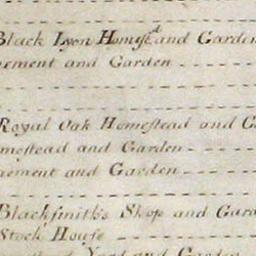 Black Lyon Homeſtd and Garden
ement and Garden
Royal Oak Homeſtead and G
meſtead and Garden
ement and Garden
Blackſmith's Shop and Gard
Stock Houſe
Yard and Garden